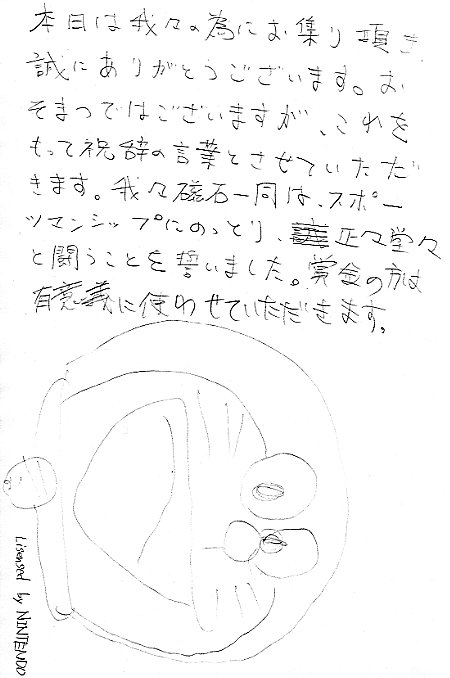 本日は我々の為にお集り頂き
誠にありがとうございます。お
そまつではございますが、これを
もって祝辞の言葉とさせていただ
きます。我々磁石一同は、スポー
ツマンシップにのっとり、正々堂々
と闘うことを誓いました。賞金の方は
有意義に使わせていただきます。
Lisensed by NINTENDO